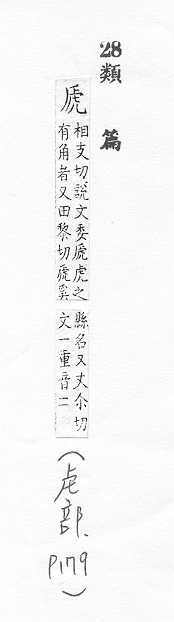 28
類篇
虒
相支切說文委虒虎之
有角者又田黎切虒奚
縣名又丈尒切
文一重音二
(虎部、P179)